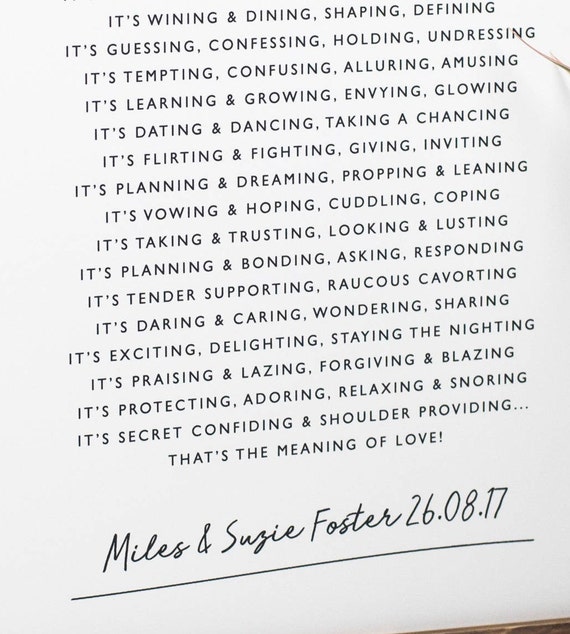 IT'S WINING & DINING, SHAPING, DEFINING
IT'S GUESSING, CONFESSING, HOLDING, UNDRESSING
IT'S TEMPTING, CONFUSING, ALLURING, AMUSING
IT'S LEARNING & GROWING, ENVYING, GLOWING
IT'S DATING & DANCING, TAKING A CHANCING
IT'S FLIRTING & FIGHTING, GIVING, INVITING
IT'S PLANNING & DREAMING, PROPPING & LEANING
IT'S VOWING & HOPING, CUDDLING, COPING
IT'S TAKING & TRUSTING, LOOKING & LUSTING
IT'S PLANNING & BONDING, ASKING, RESPONDING
IT'S TENDER SUPPORTING, RAUCOUS CAVORTING
IT'S DARING & CARING, WONDERING, SHARING
IT'S EXCITING, DELIGHTING, STAYING THE NIGHTING
IT'S PRAISING & LAZING, FORGIVING & BLAZING
IT'S PROTECTING, ADORING, RELAXING & SNORING
IT'S SECRET CONFIDING & SHOULDER PROVIDING...
THAT'S THE MEANING OF LOVE!
Miles & Suzie Foster 26.08.17